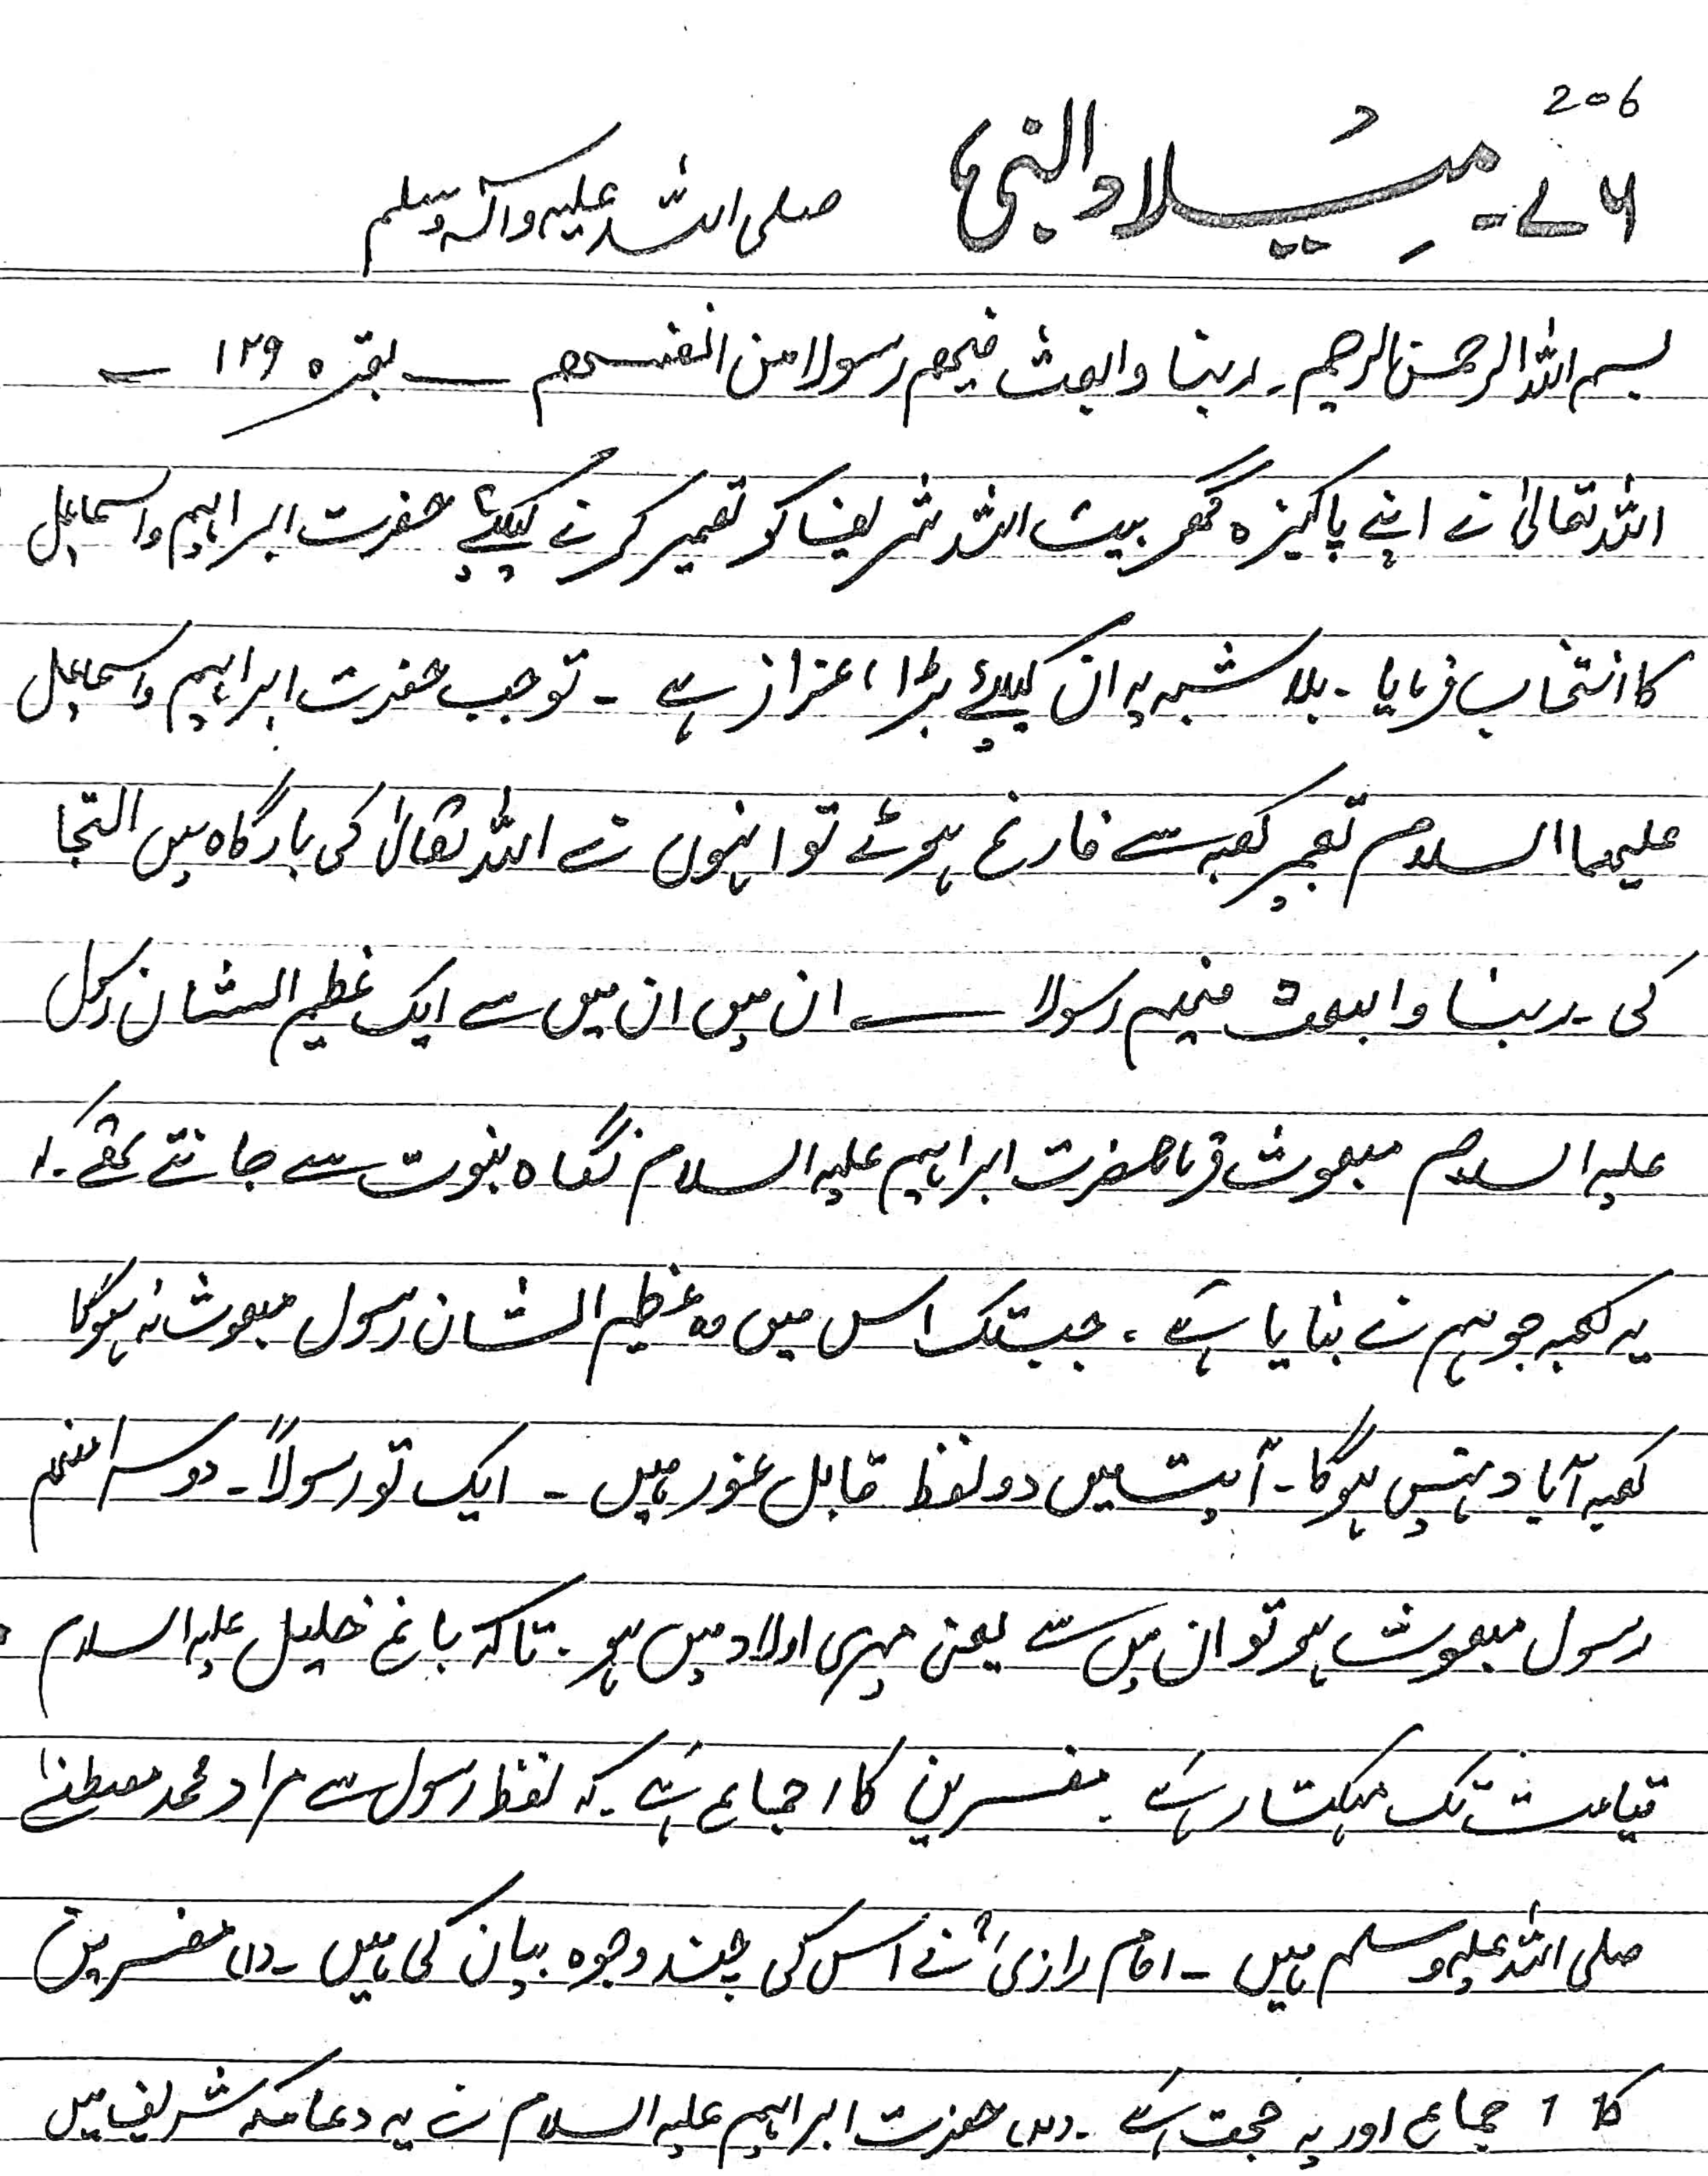 206
۷۶ - میلاد النبیؐ صلی اللہ علیہ وآلہ وسلم
بسم اللہ الرحمن الرحیم۔ ربنا وابعث فیھم رسولا من انفسھم — بقرہ ۱۲۹ —
اللہ تعالیٰ نے اپنے پاکیزہ گھر بیت اللہ شریف کو تعمیر کرنے کیلئے حضرت ابراہیم واسماعیل
کا انتخاب فرمایا۔ بلا شبہ یہ ان کیلئے بڑا اعزاز ہے ۔ تو جب حضرت ابراہیم واسماعیل
علیھما السلام تعمیر کعبہ سے فارغ ہوئے تو انہوں نے اللہ تعالیٰ کی بارگاہ میں التجا
کی۔ ربنا وابعث فیھم رسولا — ان میں ان میں سے ایک عظیم الشان رسول
علیہ السلام مبعوث فرما حضرت ابراہیم علیہ السلام نگاہ نبوت سے جانتے تھے کہ
یہ کعبہ جو ہم نے بنایا ہے ۔ جبتک اس میں وہ عظیم الشان رسول مبعوث نہ ہوگا
کعبہ آباد نہیں ہوگا۔ آیت میں دو لفظ قابل غور ہیں ۔ ایک تو رسولاً۔ دوسرا منھم
رسول مبعوث ہو تو ان میں سے یعنی میری اولاد میں ہو۔ تاکہ باغ خلیل علیہ السلام
قیامت تک مہکتا رہے ۔ مفسرین کا اجماع ہے کہ لفظ رسول سے مراد محمد مصطفےٰ
صلی اللہ علیہ وسلم ہیں ۔ امام رازیؒ نے اس کی چند وجوہ بیان کی ہیں ۔ (۱) مفسرین
کا اجماع اور یہ حجت ہے ۔ (۲) حضرت ابراہیم علیہ السلام نے یہ دعا مکہ شریف میں